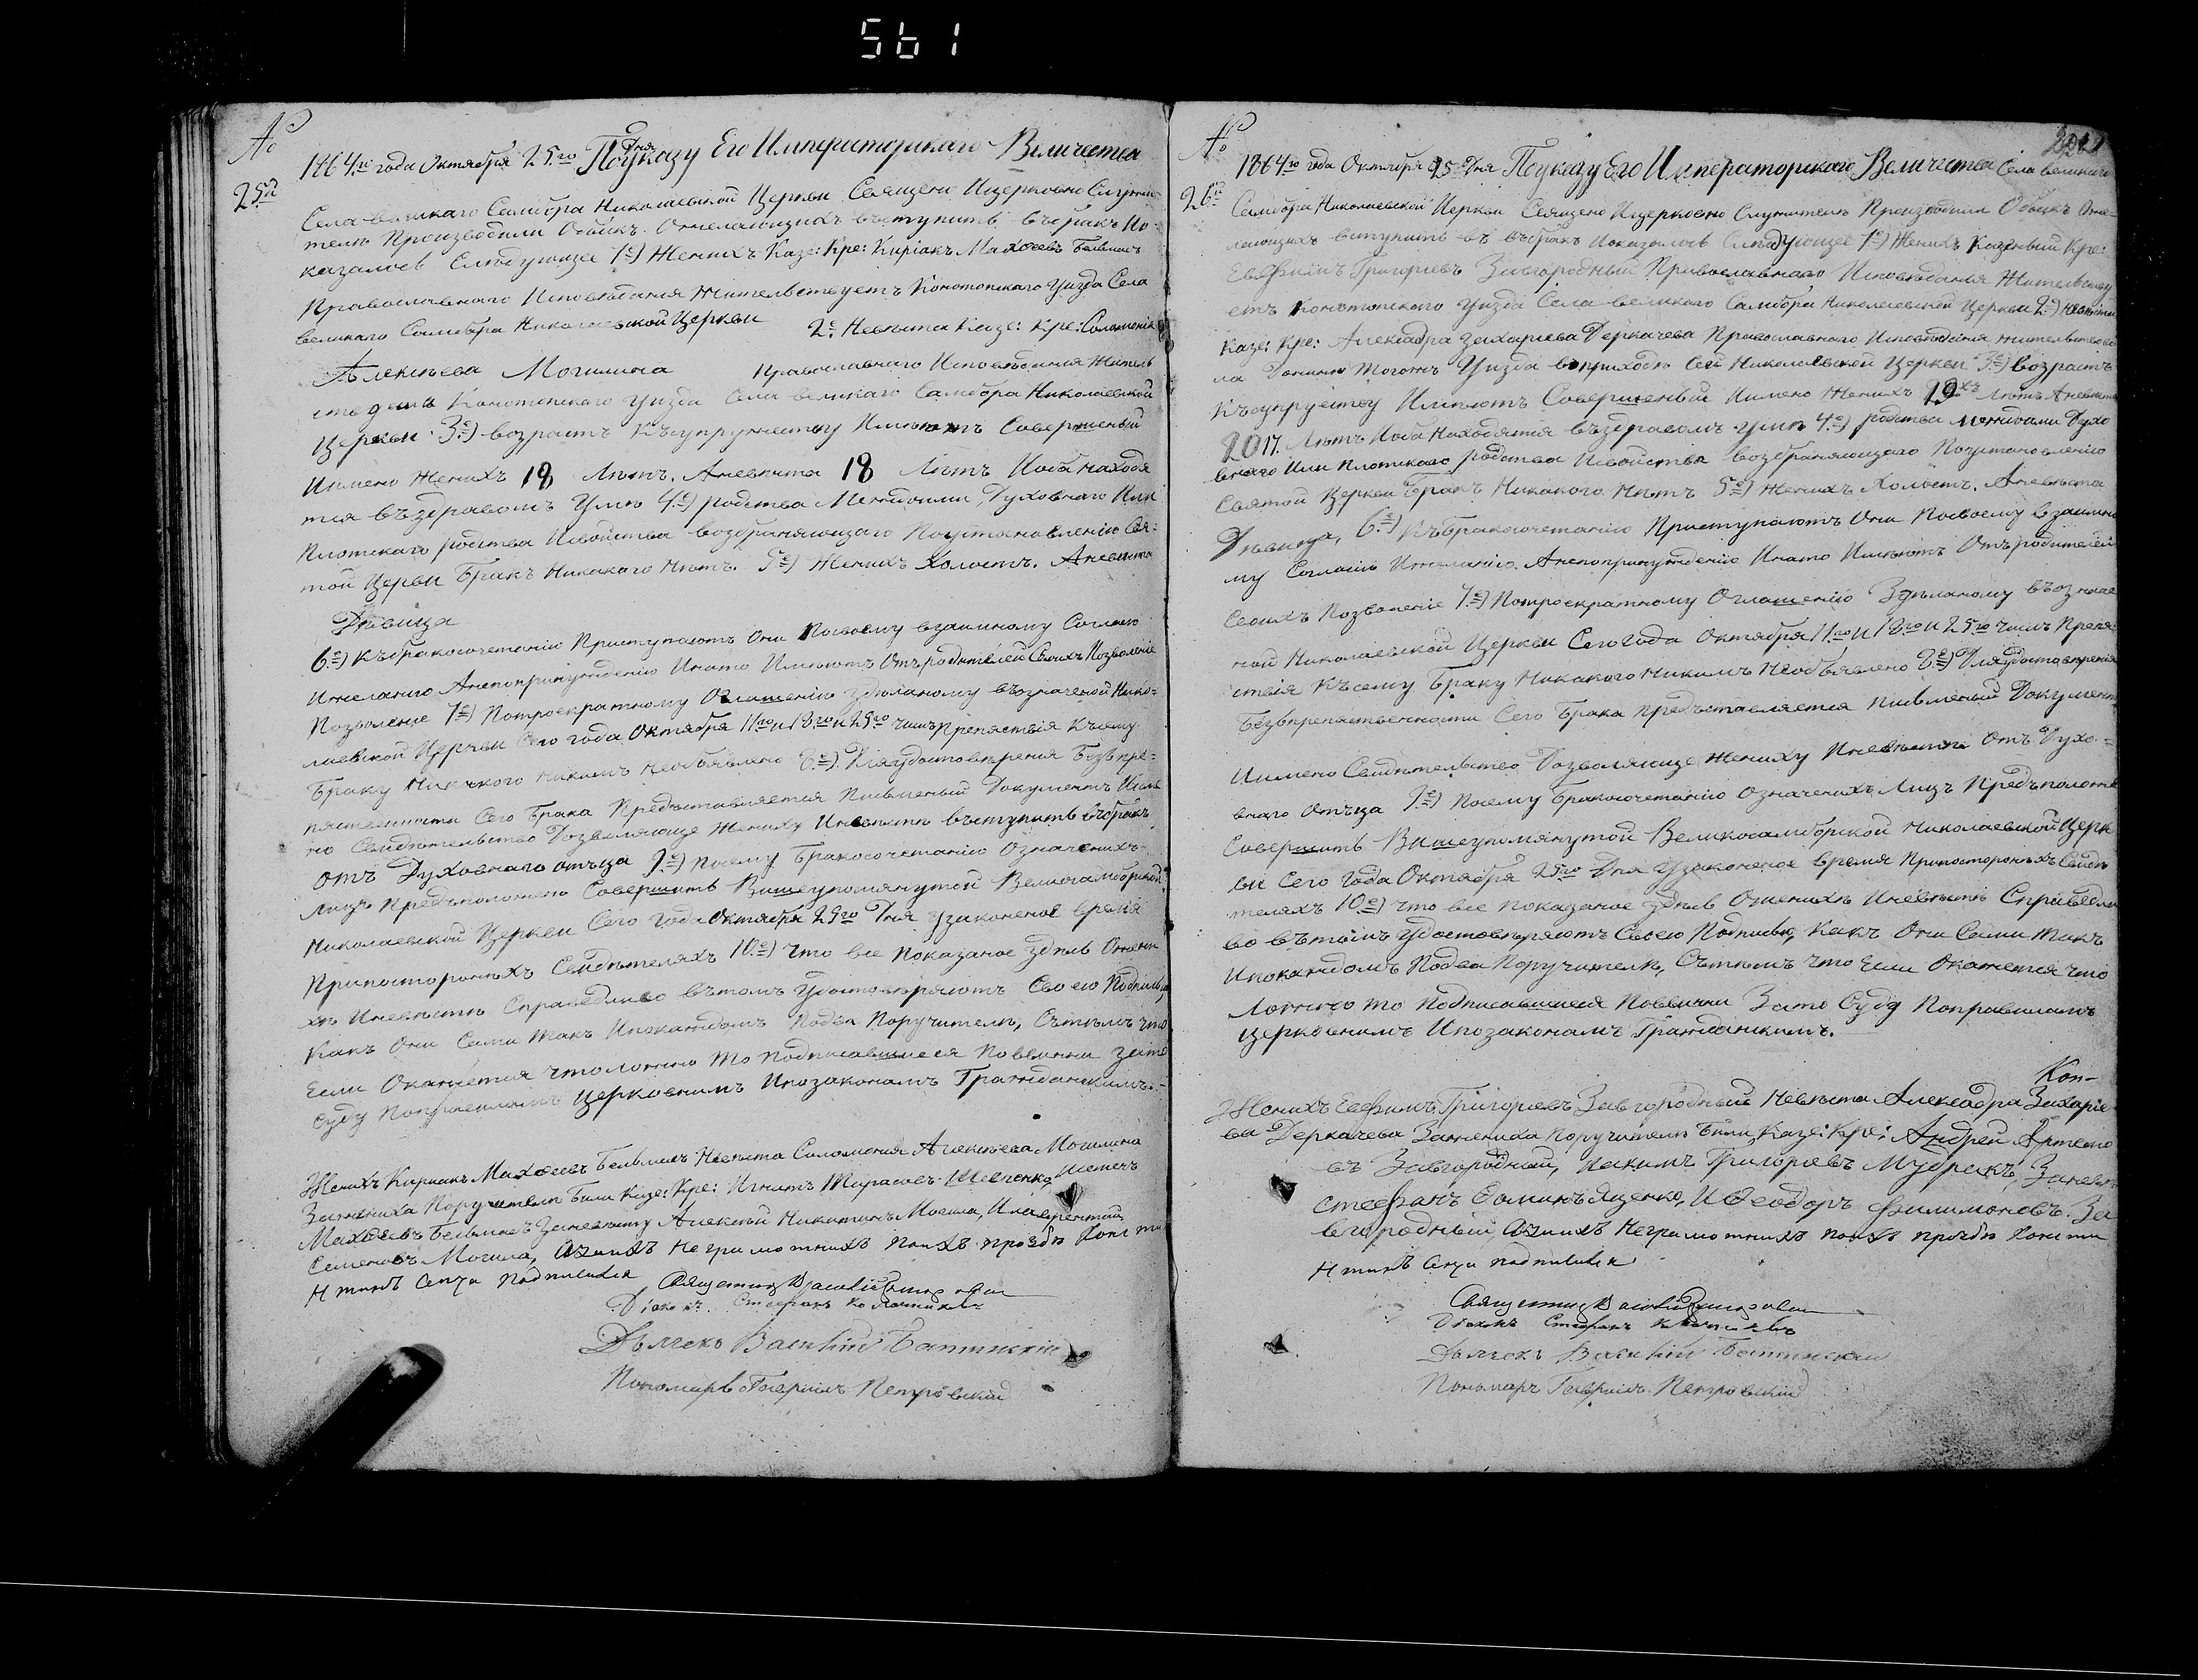 561
№
25й
1864го года Октября 25го Дня Поуказу Его Императорскаго Величества
Села великаго Самбора Николаевской Церкви Священо Ицерковно Служи-
тели Производили Обыскъ Ожелающихъ вступить вбракъ Ио-
казалось Следующее 1е) Женихъ Казе: Кре: Киріакъ Махѳеевъ Бельмасъ
Православнаго Исповѣданія Жительствуетъ Конотопскаго Уизда Села
великаго Самбора Николаевской Церкви 2е Невѣста Казе: Кре: Соломенія
Алексѣева Могилина православнаго Исповѣданія Житель
Конотопскаго Уизда Села великаго Самбора Николаевской
Церкви 3е) возрастъ Къ супружеству Имѣютъ Совершеный
Иимено Женихъ 18 Лѣтъ. Аневѣста 18 Лѣтъ Иоба находя
тся въздравомъ Умѣ 4е) родства Междоими Духовнаго Или
Плотскаго родства Исвойства возбраняющаго Поустановленію Свя-
той Церви Бракъ Никакого Нѣтъ. 5е) Женихъ Холостъ. Аневѣста
Дѣвица
6е) Къбракосочетанію Приступаютъ Они Посвоему взаимному Согласію
Ижеланію Анепопринужденію Инато Имѣютъ Отъродителей Своихъ Позволеніе
Позволеніе 7е) Потроекратному Оглашенію Зделаному въозначеной Нико-
лаевской Церкви Сего года Октября 11го и 18го и 25го Числъ Препятствія Къ сему
Браку Никакого Никимъ Необъявлено 8е) Дляудостовѣренія Безъпре-
пятственности Сего Брака Предъставляется Письменый Документъ Иимѣ
но Свидѣтельство Дозволяюще Жениху Иневѣсте въступить въбракъ
отъ Духовнаго отъца 9е) Посему Бракосочетанію Означеныхъ
лицъ Предъположено Совершить Вишеупомянутой Великосамборской
Николаевской Церкви Сего Года Октября 25го Дня Узаконеное время
Припостороныхъ Свидѣтеляхъ 10е) Что все Показаное здѣсь Ожени
хѣ Иневѣстѣ Справедливо вътомъ Удостовѣряютъ Своею Подпись,
Какъ Они Сами такъ Ипокаждомъ Подва Поручителя, Сътѣмъ что
Если Окажется Чтоложно То Подписавшиеся Повѣнни зато
Суду Поправиламъ Церковнимъ Ипозаконамъ Гражданскимъ.-
Женихъ Киріакъ Махѳеевъ Бельмасъ Невѣста Соломенія Алексѣева Могилина
Зажениха Поручители Били Казе: Кре: Игнатъ Тарасовъ Шевченко,
Махѳеевъ Бельмасъ Заневѣсту Алексѣй Никитинъ Могила, Илаврентій
Семеновъ Могила, Азанихъ Неграмотнихъ поихъ прозбѣ
подписался
Діаконъ Стефанъ
Дьячекъ Василій
Пономарь Гавріилъ Петровскій
№
26й
1864го года Октября 25го Дня Поуказу Его Императорскаго Величества Села великаго
Самбора Николаевской Церкви Священо Ицерковно Служители Производили Обыскъ Оже-
лающихъ вступить въ въбракъ Иоказалось Слѣдующее 1е) Женихъ Казеный Кре:
Евфимъ Григорьевъ Завгородный Православнаго Исповѣданія Жительству
етъ Конотопскаго Уизда Села великаго Самбора Николаевской Церкви 2е) Невѣста
Казе: Кре: Александра Захаріева Деркачева Православнаго Исповѣданія жительствова
ла Донинѣ Тогожъ Уизда вприходѣ Сей Николаевской Церкви 3е) возрастъ
Късупруству Имѣютъ Совершеный Иимено Женихъ 19хъ Лѣтъ Аневѣста
17. Лѣтъ Иоба Находятся въздравомъ умѣ 4е) родства Междоими Духо
внаго Или Плотскаго родства Исвойства возбраняющаго Поустановленію
Святой Церкви Бракъ Никакого Нѣтъ 5е) Женихъ Холостъ. Аневѣста
Дѣвица, 6е) Къбракосочетанію Приступаютъ Они Посвоему взаимно
му Согласію Ижеланію. Анепопринужденію Инато Имѣютъ Отъродителей
Своихъ Позволеніе 7е) Потроекратному Оглашенію Здѣланому въозначе
ной Николаевской Церкви Сего года Октября 11го и 18го и 25го Числъ Препя
тствія Късему Браку Никакого Никимъ Необъявлено 8е) Дляудостовѣренія
Безъпрепятственности Сего Брака Предъставляется письменый Документъ
Иимено Свидѣтельство Дозволяюще Жениху Иневѣсте отъ Духо-
внаго отъца 9е) Посему Бракосочетанію Означеныхъ Лицъ Предъположе
Совершить Вишеупомянутой Великосамборской Николаевской Церк
ви Сего Года Октября 25го Дня Узаконеное время Припостороныхъ Свидѣ
теляхъ 10е) что все показаное здѣсь Оженихѣ Иневѣстѣ Справедли
во вътомъ Удостовѣряютъ Своею Подпись, Какъ Они Сами такъ
Ипокаждомъ Подва Поручителя, Сътѣмъ что Если Окажется что
Ложно то Подписавшиеся Повѣнни Зато Суду Поправиламъ
Церковнимъ Ипозаконамъ Гражданскимъ.
Женихъ Евфимъ Григорьевъ Завгородный Невѣста Александра Захаріе
ва Деркачева Зажениха Поручители Били Казе: Кре: Андрей Артемо
въ Завгородный, Иакимъ Григорьевъ Мудракъ, Заневѣ
Стефанъ Фоминъ Яценко, Иѳеодоръ Филимоновъ За
вгородный, Азанихъ Неграмотнихъ поихъ прозбѣ
подписался
Діаконъ Стефанъ
Дьячекъ Василій
Пономарь Гавріилъ Петровскій